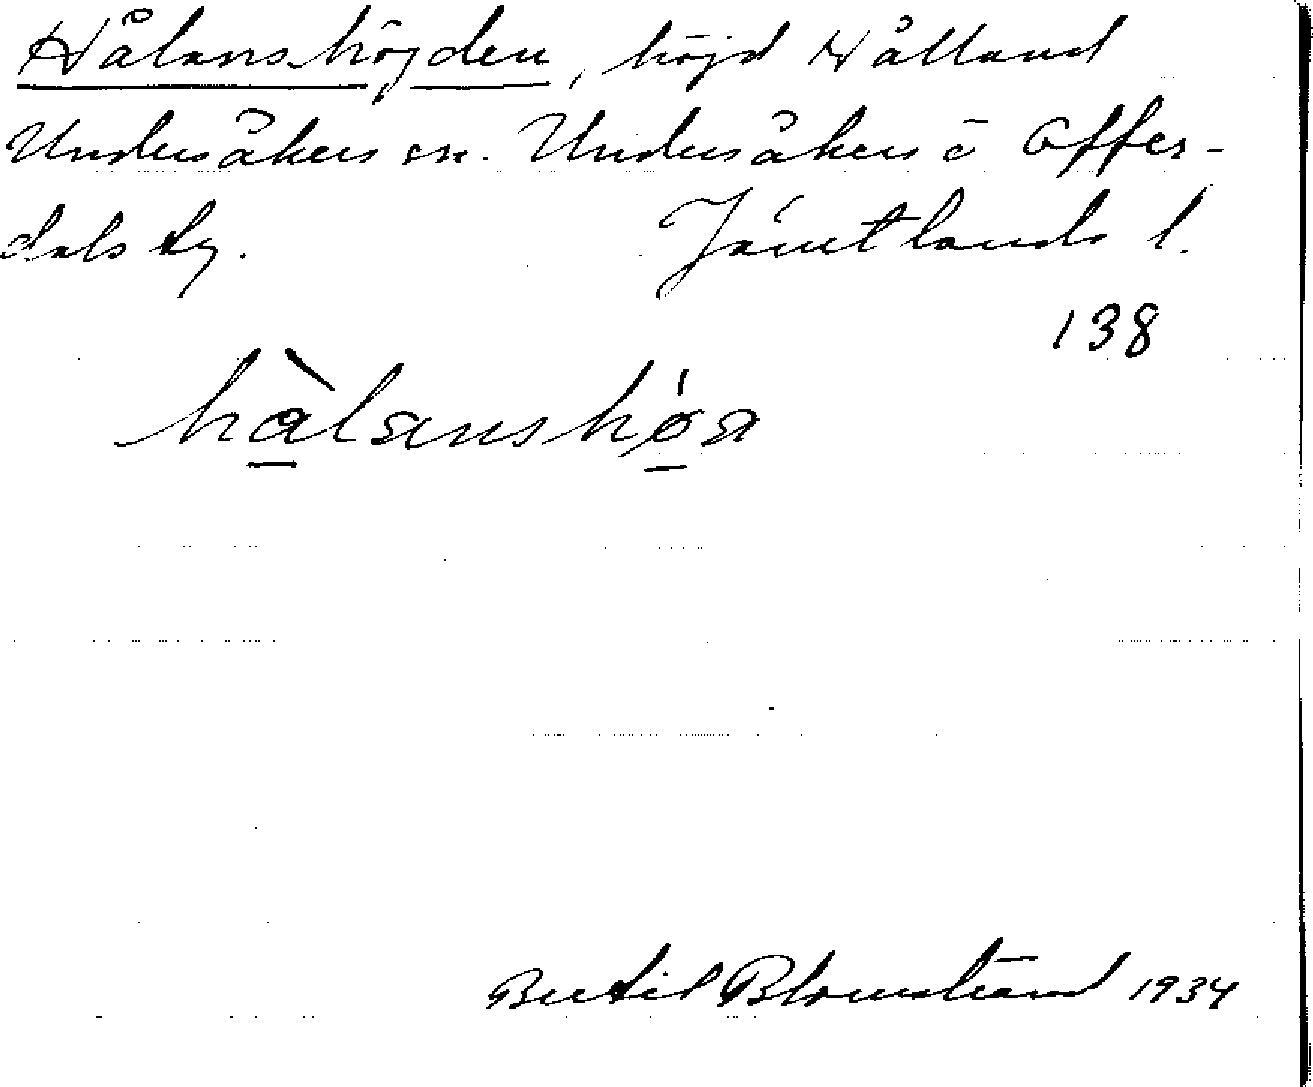 Hålanshöjden, höjd Hålland
Undersåkers sn. Undersåkers o Offer-
dals tg. Jämtlands l.
138
hàlanshǿa
Bertil Blomstrand 1934